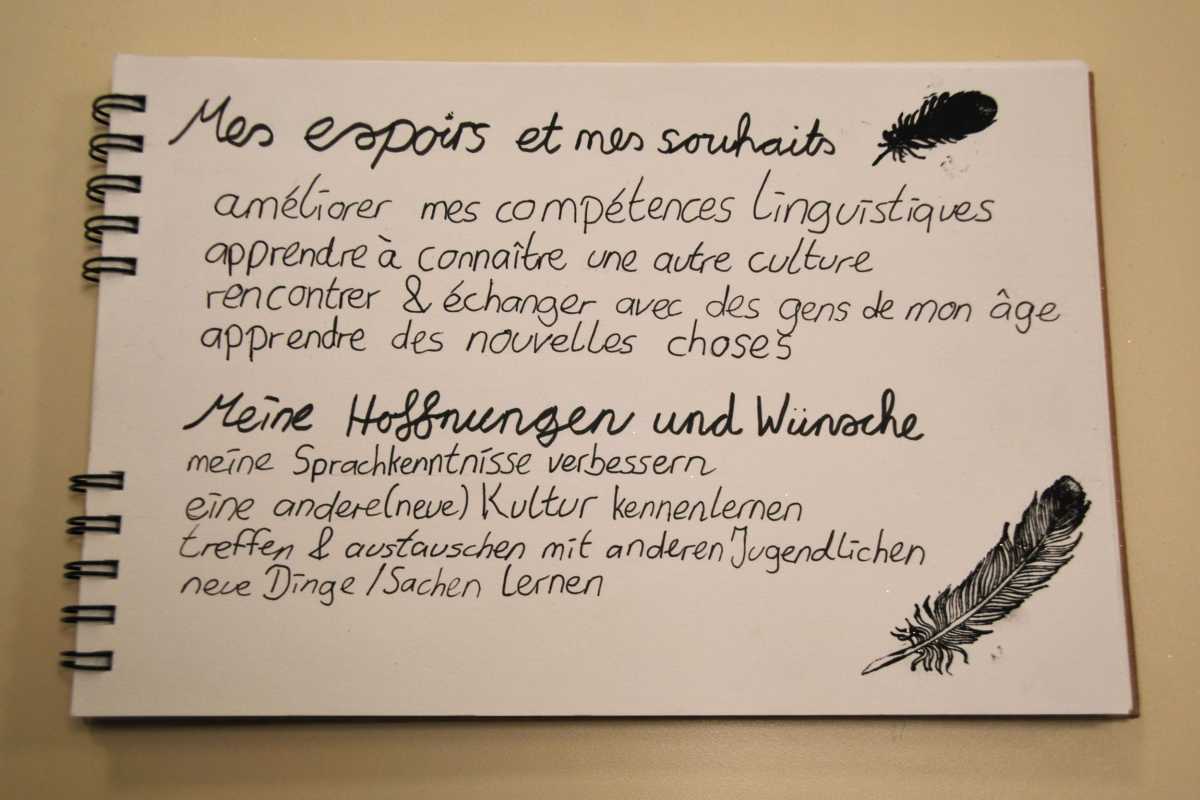 Mes espoirs et mes souhaits
améliorer mes compétences linguistiques
apprendre à connaître une autre culture
rencontrer & échanger avec des gens de mon âge
apprendre des nouvelles choses
Meine Hoffnungen und Wünsche
meine Sprachkenntnisse verbessern
eine andere(neue) Kultur kennenlernen
treffen & austauschen mit anderen Jugendlichen
neue Dinge/Sachen lernen